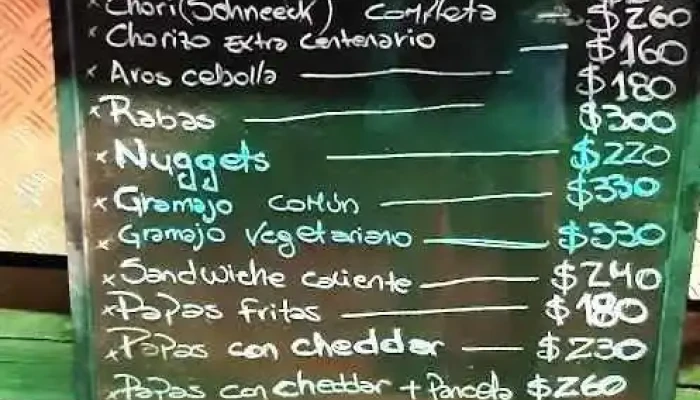 x Chori (Schneeck) completa — $260
x Chorizo Extra Centenario — $160
x Aros cebolla — $180
x Rabas — $300
x Nuggets — $220
x Gramajo común — $330
x Gramajo Vegetariano — $330
x Sandwiche caliente — $240
x Papas fritas — $180
x Papas con cheddar — $230
x Papas con cheddar + Panceta $260